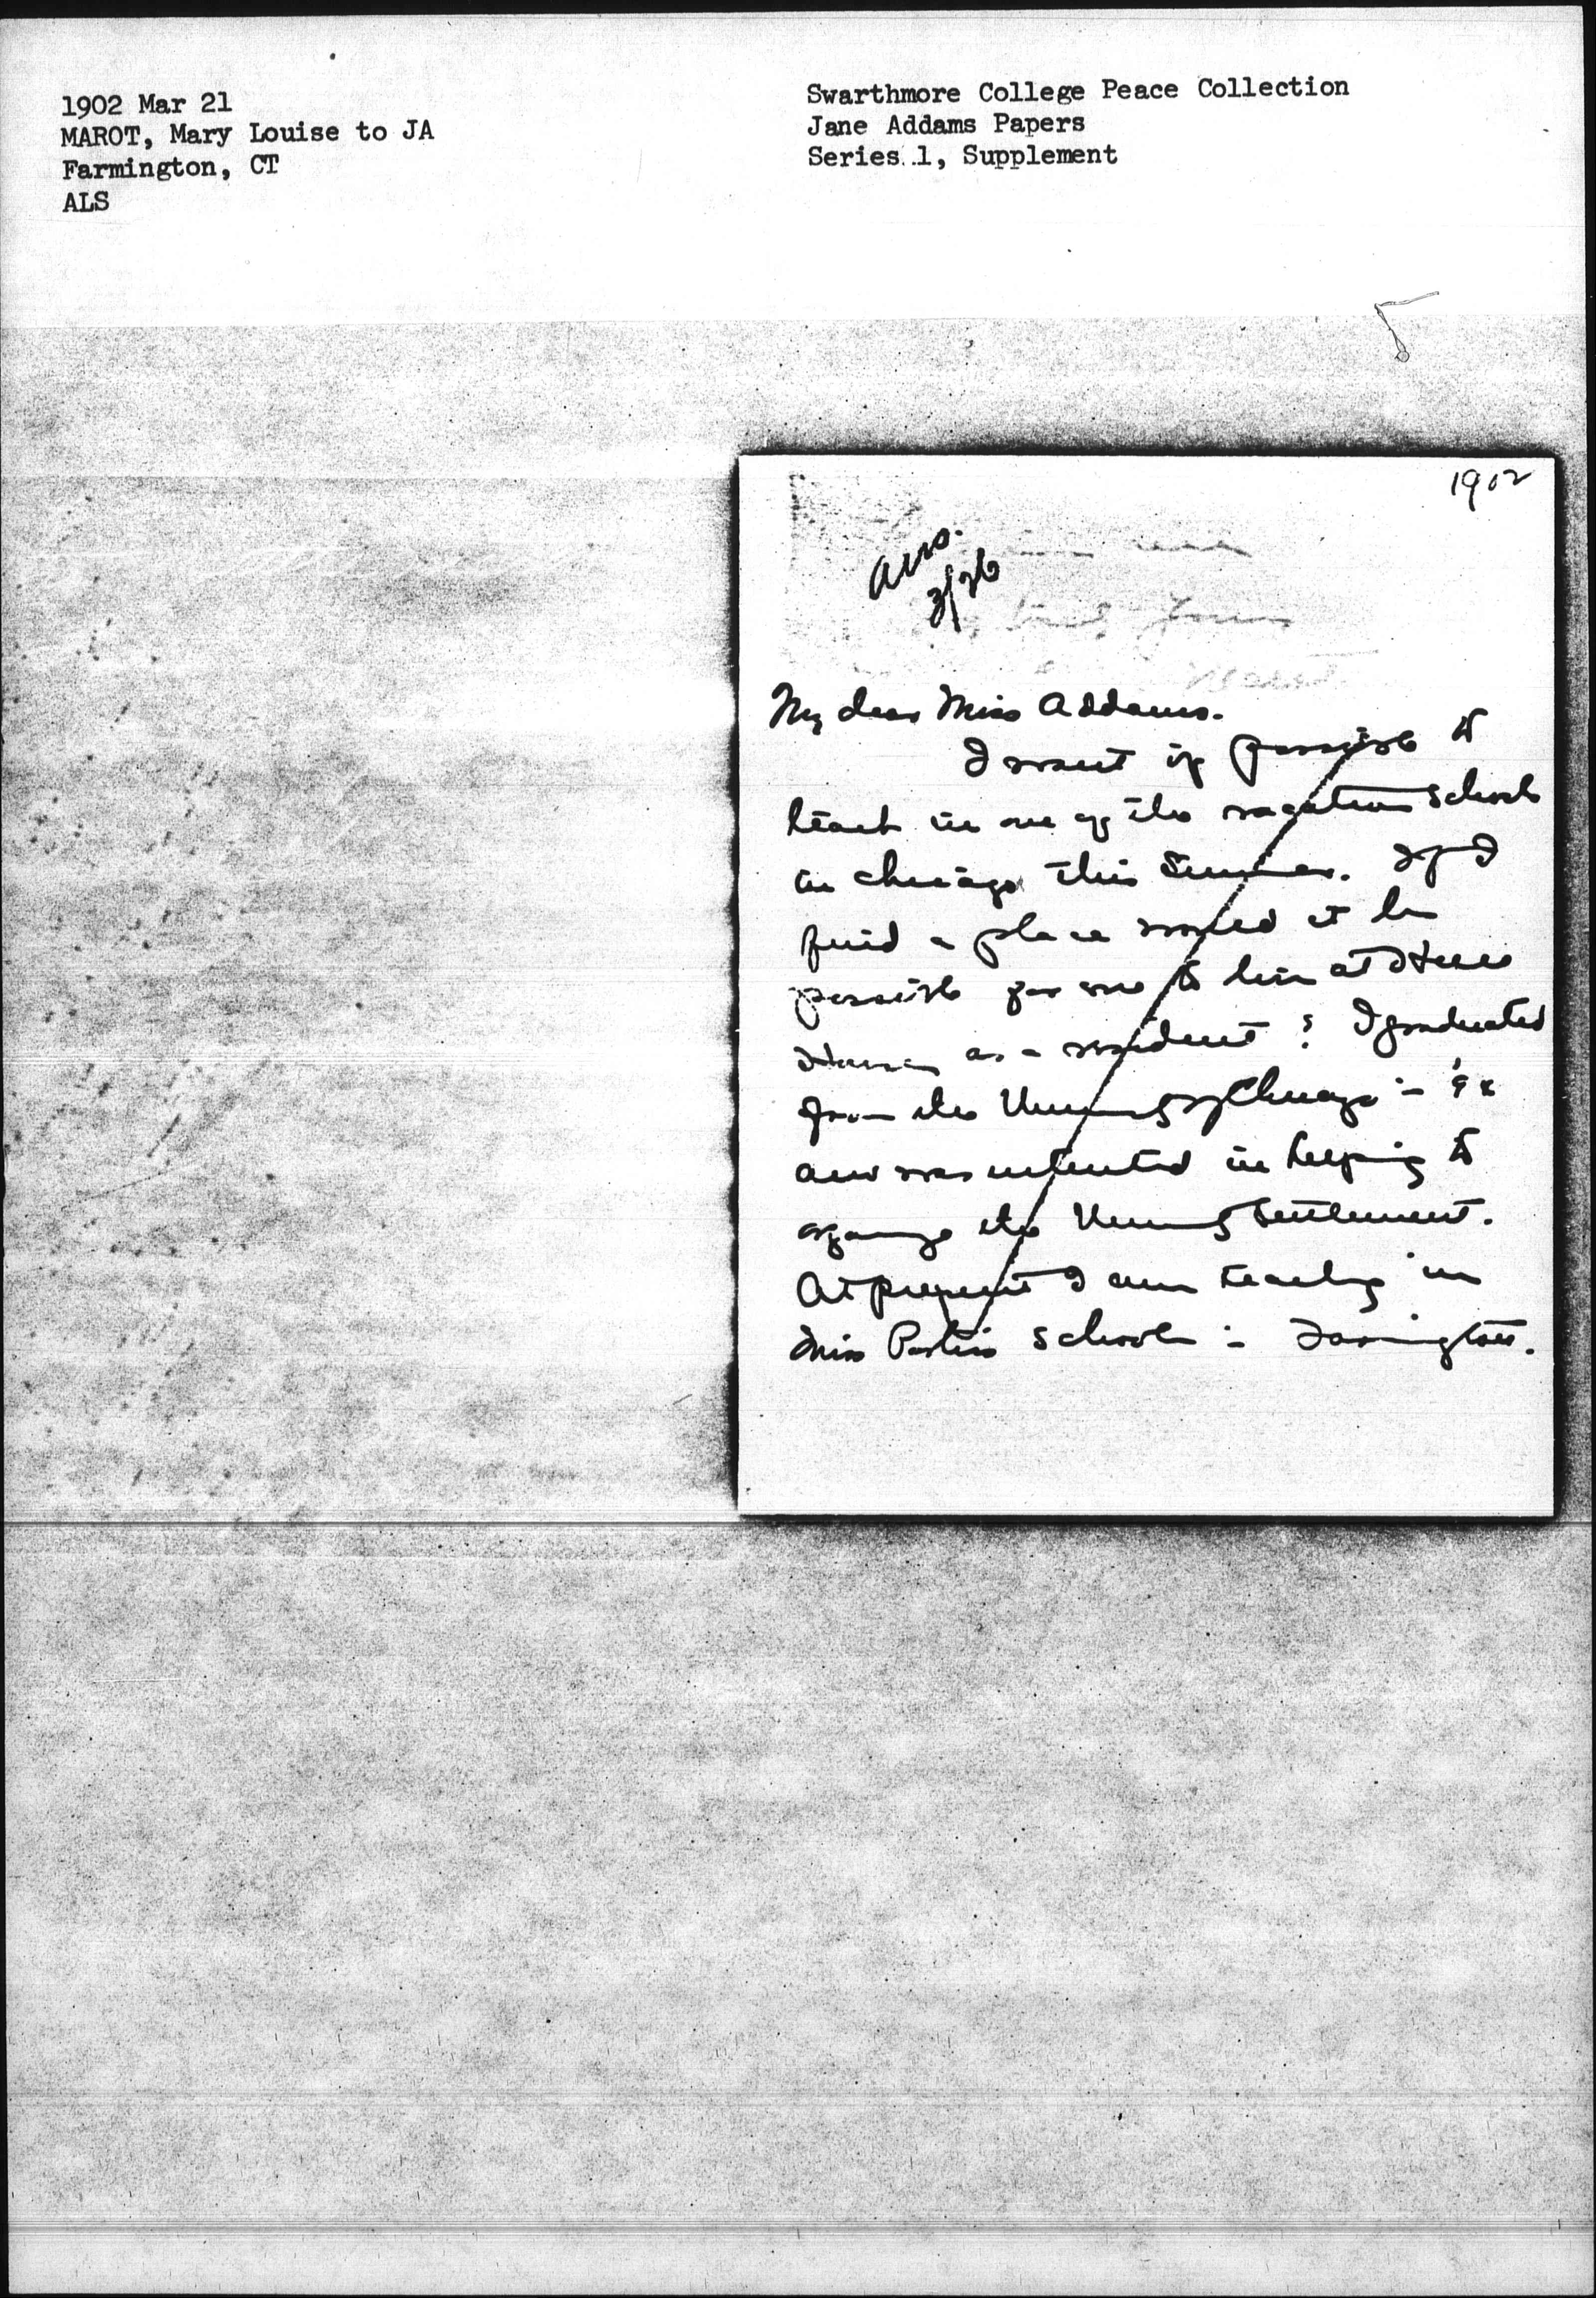 1902 Mar 21
MAROT, Mary Louise to JA
Farmington, CT
ALS
Swarthmore College Peace Collection
Jane Addams Papers
Series 1, Supplement
1902
Ans.
3/26
My dear Miss Addams.
I want if possible to
teach in one of the vacation schools
in Chicago this Summer. If I
find a place would it be
possible for me to live at Hull
House as a resident? I graduated
from the University of Chicago in '94
and was interested in helping to
organize the University Settlement.
At present I am teaching in
Miss Porter's School in Farmington.